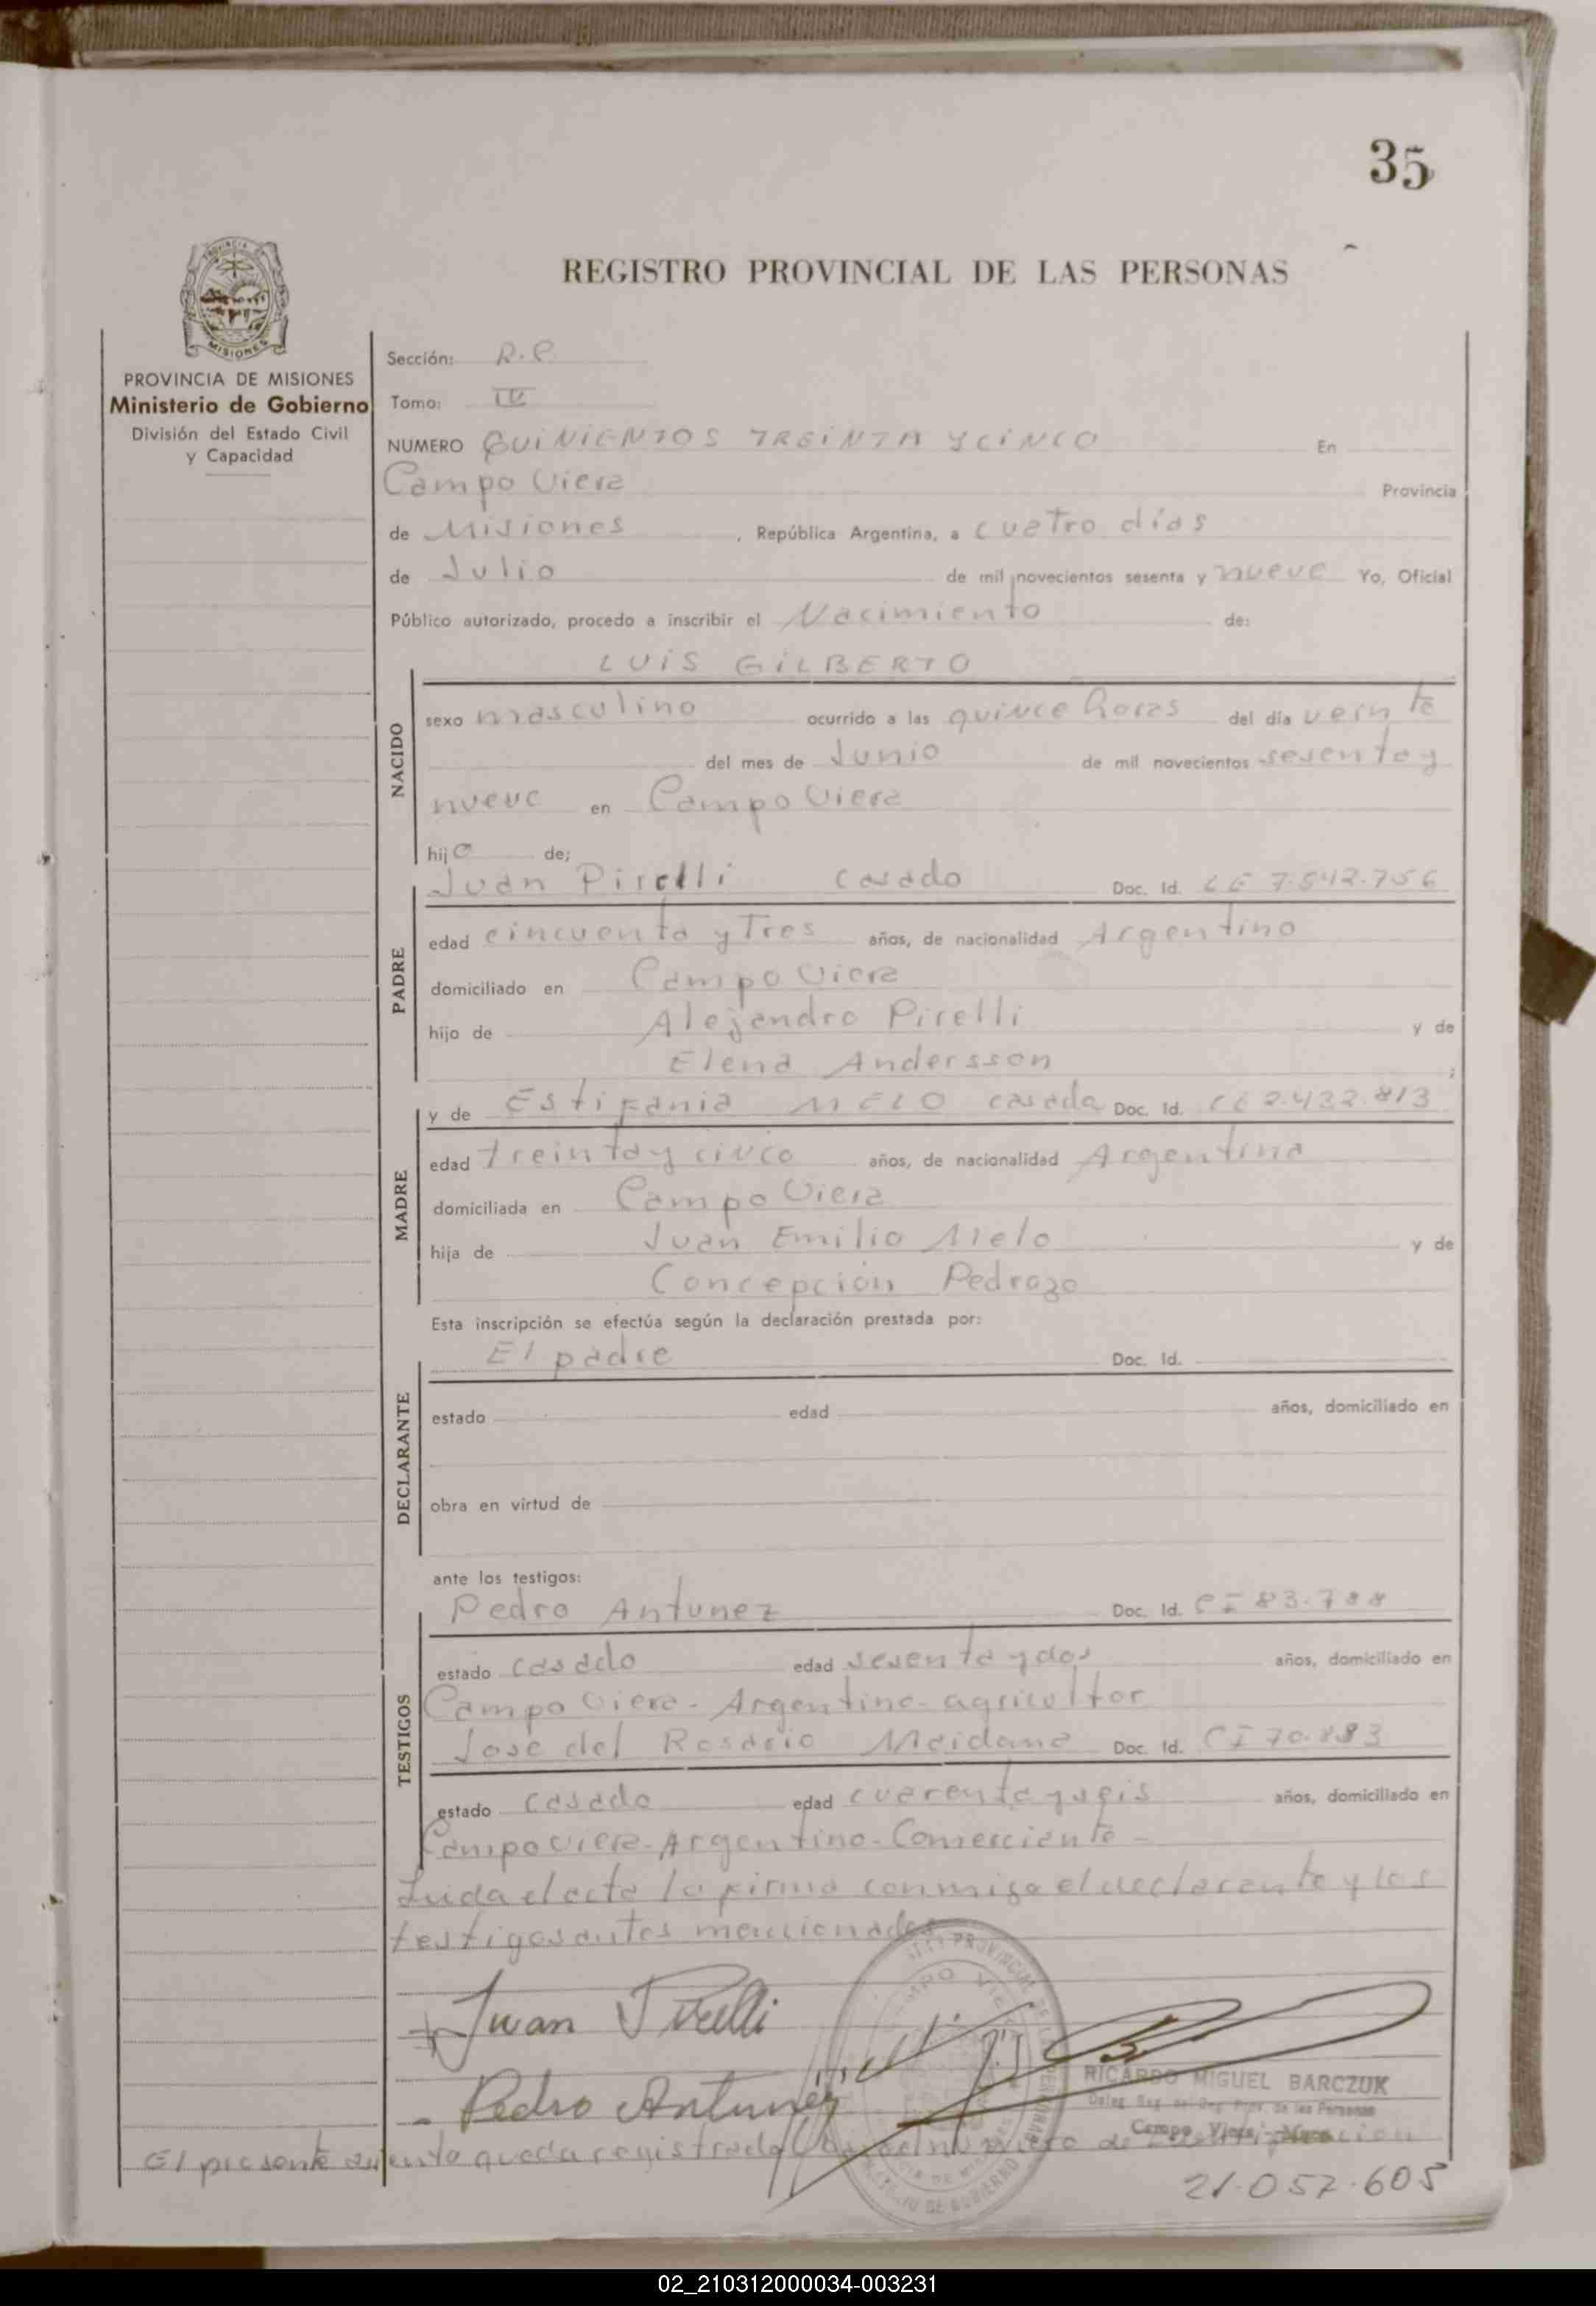 35
REGISTRO PROVINCIAL DE LAS PERSONAS
PROVINCIA
MISIONES
PROVINCIA DE MISIONES
Ministerio de Gobierno
División del Estado Civil
y Capacidad
Sección: R.P.
Tomo: IV
NUMERO QUINIENTOS TREINTA Y CINCO En
Campo Viera Provincia
de Misiones, República Argentina, a cuatro días
de Julio de mil novecientos sesenta y nueve Yo, Oficial
Público autorizado, procedo a inscribir el Nacimiento de:
LUIS GILBERTO
NACIDO
sexo masculino ocurrido a las quince horas del día veinte
del mes de Junio de mil novecientos sesenta y
nueve en Campo Viera
hijo de;
PADRE
Juan Pirelli casado Doc. Id. LE 7.542.756
edad cincuenta y Tres años, de nacionalidad Argentino
domiciliado en Campo Viera
hijo de Alejandro Pirelli y de
Elena Andersson;
MADRE
y de Estifania MELO casada Doc. Id. 2.432.813
edad treinta y cinco años, de nacionalidad Argentina
domiciliada en Campo Viera
hija de Juan Emilio Melo y de
Concepción Pedrozo
Esta inscripción se efectúa según la declaración prestada por:
DECLARANTE
El padre Doc. Id.
estado edad años, domiciliado en
obra en virtud de
ante los testigos:
TESTIGOS
Pedro Antunez Doc. Id. CI 83.788
estado casado edad sesenta y dos años, domiciliado en
Campo Viera - Argentino - agricultor
Jose del Rosario Maidana Doc. Id. CI 70.883
estado casado edad cuarenta y seis años, domiciliado en
Campo Viera - Argentino - Comerciante -
Leida el acta la firma conmigo el declarante y los
testigos antes mencionados
Juan Pirelli
Pedro Antunez
RICARDO MIGUEL BARCZUK
Campo Viera - Mnes.
El presente asiento queda registrado bajo el número de identificación
21.057.605
02_210312000034-003231